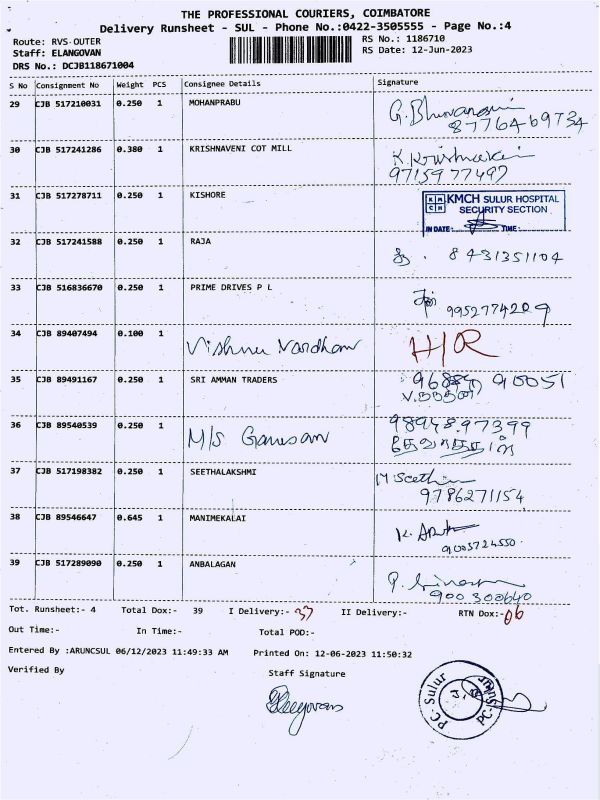 THE PROFESSIONAL COURIERS, COIMBATORE
Delivery Runsheet - SUL - Phone No.:0422-3505555 - Page No.:4
Route: RVS-OUTER
RS No.: 1186710
Staff: ELANGOVAN
RS Date: 12-Jun-2023
DRS No.: DCJB118671004
S No Consignment No Weight PCS Consignee Details Signature
29 CJB 517210031 0.250 1 MOHANPRABU
30 CJB 517241286 0.380 1 KRISHNAVENI COT MILL
9715977497
31 CJB 517278711 0.250 1 KISHORE KMCH SULUR HOSPITAL
SECURITY SECTION
IN DATE: TIME:
32 CJB 517241588 0.250 1 RAJA 8431351104
33 CJB 516836670 0.250 1 PRIME DRIVES P L
9952774209
34 CJB 89407494 0.100 1 Vishnu Vardhan H/R
35 CJB 89491167 0.250 1 SRI AMMAN TRADERS
36 CJB 89540539 0.250 1 M/S Ganesan 98948.97399
37 CJB 517198382 0.250 1 SEETHALAKSHMI
9786271154
38 CJB 89546647 0.645 1 MANIMEKALAI
9003724550
39 CJB 517289090 0.250 1 ANBALAGAN
900300640
Tot. Runsheet:- 4 Total Dox:- 39 I Delivery:- 33 II Delivery:- RTN Dox:- 06
Out Time:- In Time:- Total POD:-
Entered By :ARUNCSUL 06/12/2023 11:49:33 AM Printed On: 12-06-2023 11:50:32
Verified By Staff Signature
PC-Sulur